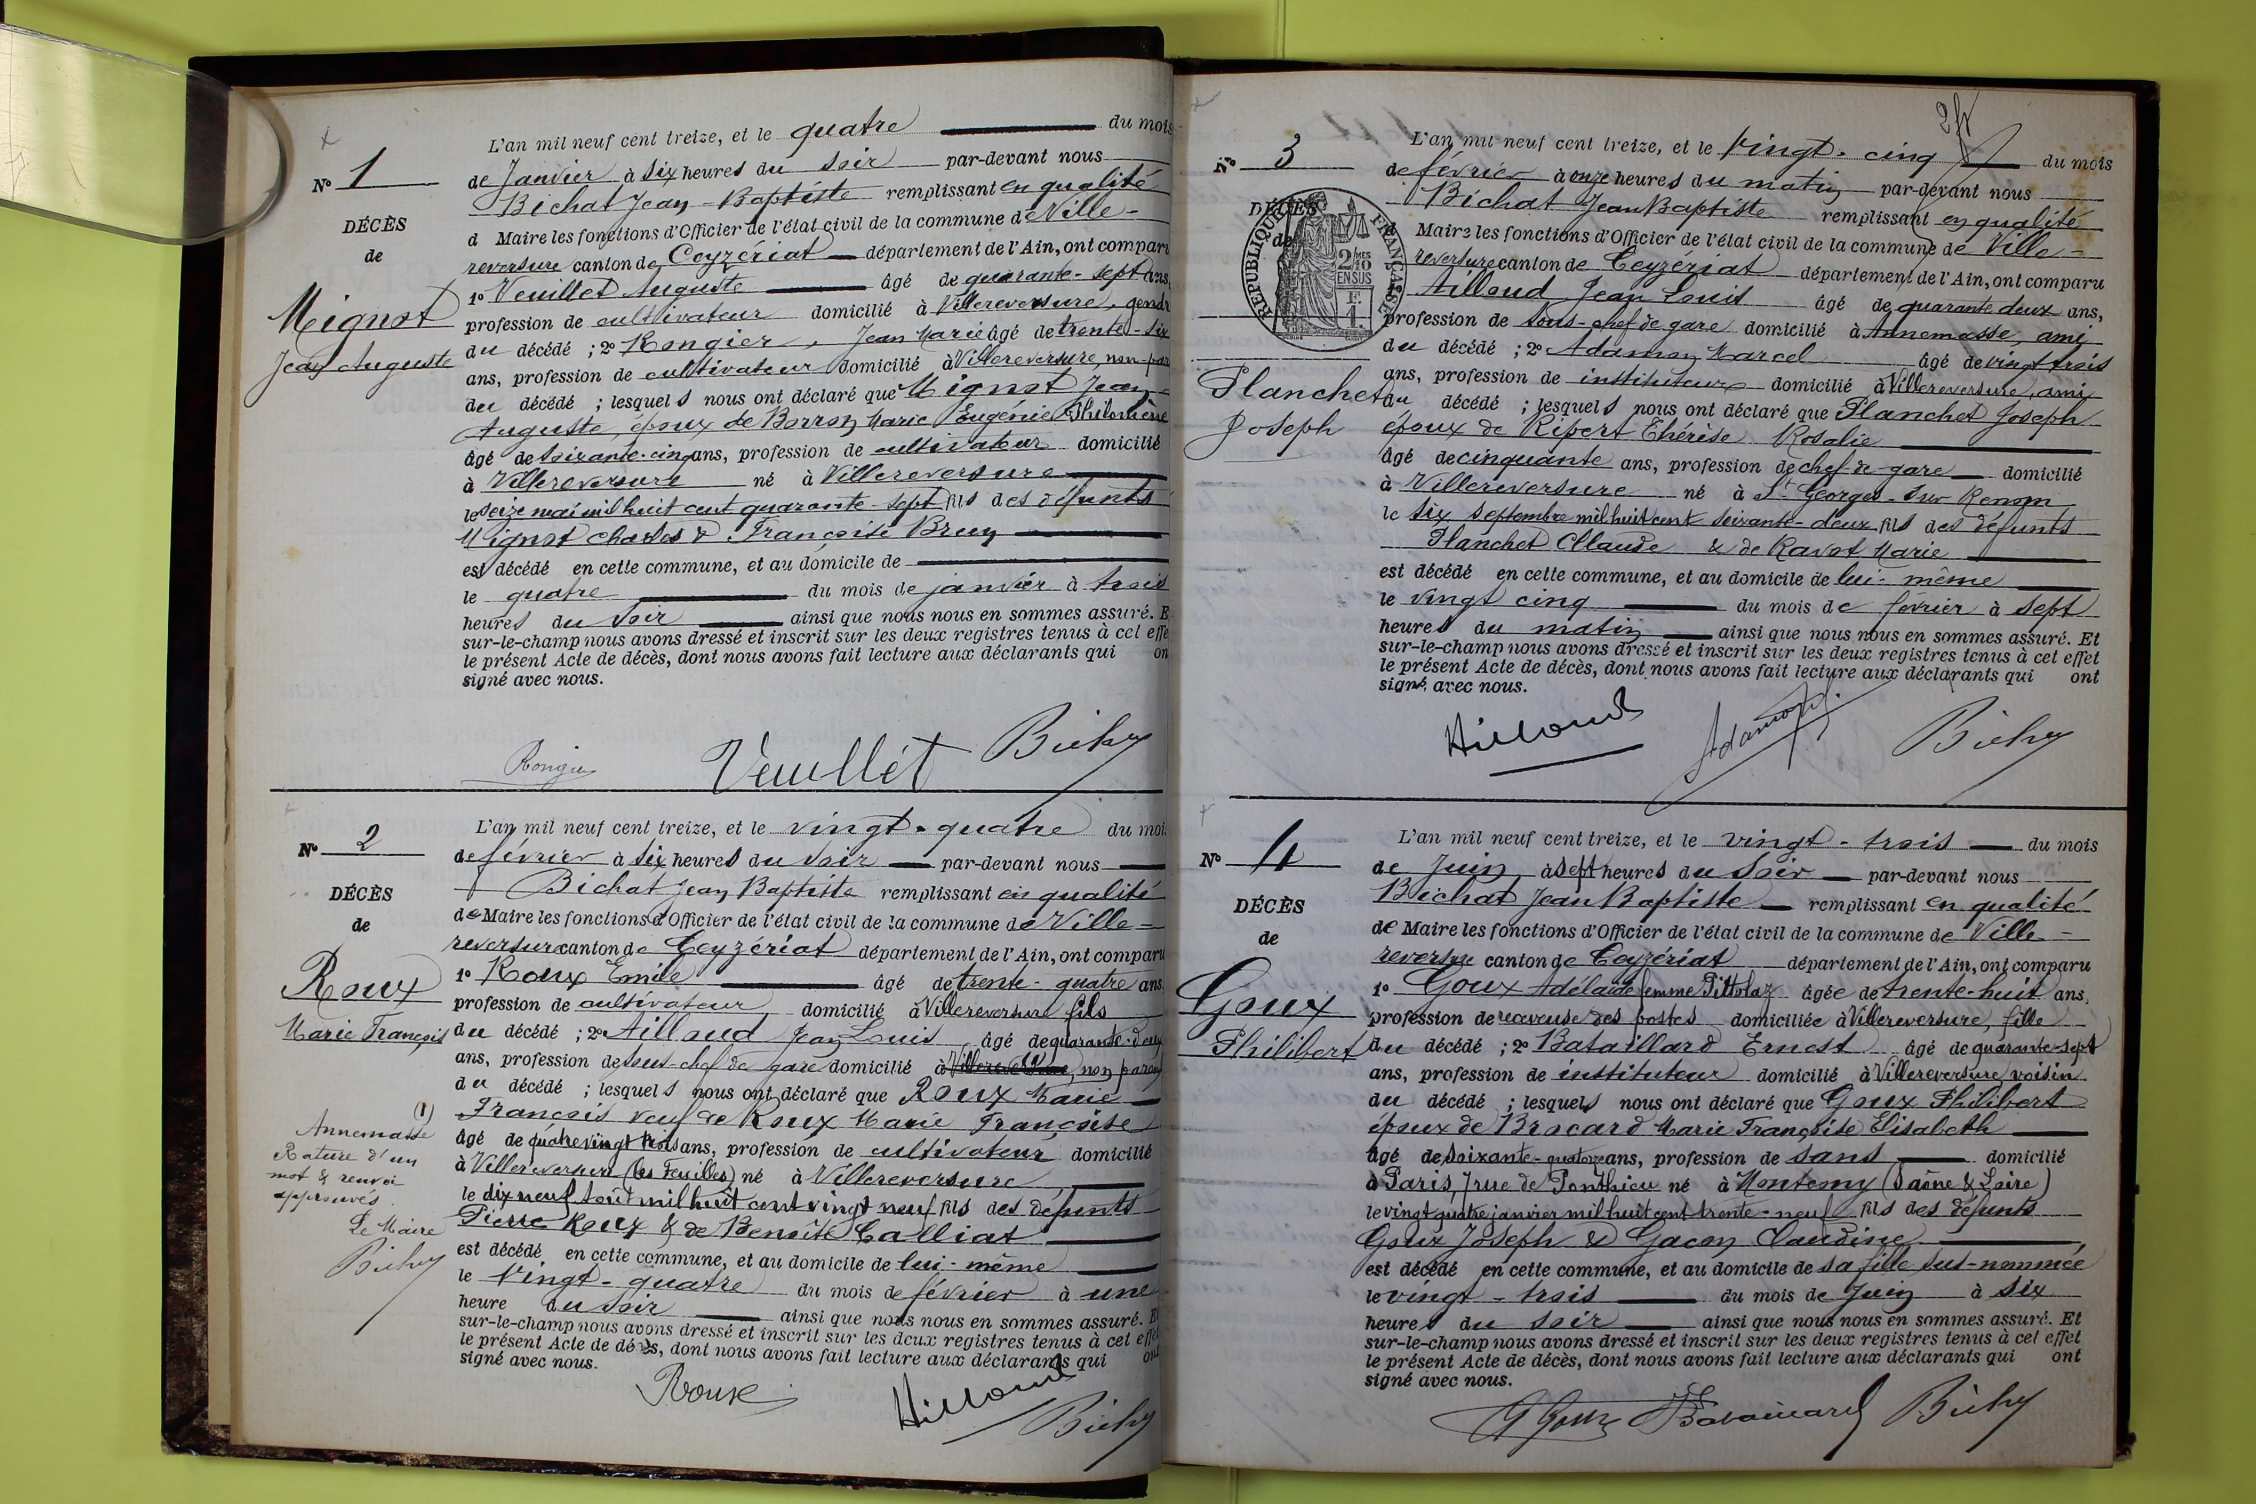 L'an mil neuf cent treize, et le quatre du mois
N° 1
de Janvier à six heures du soir par-devant nous
Bichat Jean-Baptiste remplissant en qualité
DÉCÈS
d Maire les fonctions d'Officier de l'état civil de la commune de Ville-
de
reversure canton de Ceyzériat département de l'Ain, ont comparu
1° Veuillet Auguste âgé de quarante-sept ans,
Mignot
profession de cultivateur domicilié à Villereversure, gendre
Jean Auguste
du décédé ; 2° Rongier, Jean Marie âgé de trente-six
ans, profession de cultivateur domicilié à Villereversure, non-par
du décédé ; lesquels nous ont déclaré que Mignot Jean-
Auguste, époux de Borron Marie Eugénie Philomène
âgé de soixante-cinq ans, profession de cultivateur domicilié
à Villereversure né à Villereversure
le seize mai mil huit cent quarante-sept fils des défunts
Mignot Charles & Françoise Brun
est décédé en cette commune, et au domicile de
le quatre du mois de janvier à trois
heures du soir ainsi que nous nous en sommes assuré. E
sur-le-champ nous avons dressé et inscrit sur les deux registres tenus à cet effe
le présent Acte de décès, dont nous avons fait lecture aux déclarants qui on
signé avec nous.
Rongier Veuillet Bichat
L'an mil neuf cent treize, et le vingt-quatre du moi
N° 2
de février à six heures du soir par-devant nous
Bichat Jean Baptiste remplissant en qualité
DÉCÈS
de Maire les fonctions d'Officier de l'état civil de la commune de Ville-
de
reversure canton de Ceyzériat département de l'Ain, ont comparu
1° Roux Emile âgé de trente-quatre ans
Roux
profession de cultivateur domicilié à Villereversure fils
Marie François
du décédé ; 2° Aillaud Jean Louis âgé de quarante-deux
ans, profession de sous-chef de gare domicilié à Villereversure, non parent
du décédé ; lesquels nous ont déclaré que Roux Marie
François veuf de Roux Marie Françoise
(1)
Annemasse
âgé de quatre vingt trois ans, profession de cultivateur domicilié
Rature d'un
à Villereversure (les Feuilles) né à Villereversure
mot & renvoi
approuvés
le dix neuf août mil huit cent vingt neuf fils des défunts
Le Maire
Pierre Roux & de Benoîte Calliat
Bichat
est décédé en cette commune, et au domicile de lui-même
le vingt-quatre du mois de février à une
heure du soir ainsi que nous nous en sommes assuré. E
sur-le-champ nous avons dressé et inscrit sur les deux registres tenus à cet effet
le présent Acte de décès, dont nous avons fait lecture aux déclarants qui ont
signé avec nous.
Roux Aillaud Bichat
L'an mil neuf cent treize, et le vingt-cinq du mois
N° 3
de février à onze heures du matin par-devant nous
Bichat Jean Baptiste remplissant en qualité
DÉCÈS
Maire les fonctions d'Officier de l'état civil de la commune de Ville-
de
reversure canton de Ceyzériat département de l'Ain, ont comparu
RÉPUBLIQUE FRANÇAISE
2 MES 10 EN SUS
F. 1.
Aillaud Jean Louis âgé de quarante deux ans,
profession de sous-chef de gare domicilié à Annemasse, ami
du décédé ; 2° Adamon Marcel âgé de vingt trois
ans, profession de instituteur domicilié à Villereversure, ami
Planchet
du décédé ; lesquels nous ont déclaré que Planchet Joseph
Joseph
époux de Ripert Thérèse Rosalie
âgé de cinquante ans, profession de chef de gare domicilié
à Villereversure né à St Georges-sur Renom
le six septembre mil huit cent soixante-deux fils des défunts
Planchet Claude & de Ravot Marie
est décédé en cette commune, et au domicile de lui-même
le vingt cinq du mois de février à sept
heures du matin ainsi que nous nous en sommes assuré. Et
sur-le-champ nous avons dressé et inscrit sur les deux registres tenus à cet effet
le présent Acte de décès, dont nous avons fait lecture aux déclarants qui ont
signé avec nous.
Aillaud Adamon Bichat
L'an mil neuf cent treize, et le vingt-trois du mois
N° 4
de Juin à sept heures du soir par-devant nous
Bichat Jean Baptiste remplissant en qualité
DÉCÈS
de Maire les fonctions d'Officier de l'état civil de la commune de Ville-
de
reversure canton de Ceyzériat département de l'Ain, ont comparu
1° Goux Adélaïde femme Pittolaz âgée de trente-huit ans,
Goux
profession de receveuse des postes domiciliée à Villereversure, fille
Philibert
du décédé ; 2° Bataillard Ernest âgé de quarante-sept
ans, profession de instituteur domicilié à Villereversure voisin
du décédé ; lesquels nous ont déclaré que Goux Philibert
époux de Brocard Marie Françoise Elisabeth
âgé de soixante-quatorze ans, profession de sans domicilié
à Paris, 7 rue de Ponthieu né à Montemy (Saône & Loire)
le vingt quatre janvier mil huit cent trente-neuf fils des défunts
Goux Joseph & Gacon Claudine
est décédé en cette commune, et au domicile de sa fille sus-nommée
le vingt-trois du mois de Juin à six
heures du soir ainsi que nous nous en sommes assuré. Et
sur-le-champ nous avons dressé et inscrit sur les deux registres tenus à cet effet
le présent Acte de décès, dont nous avons fait lecture aux déclarants qui ont
signé avec nous.
A Goux Bataillard Bichat